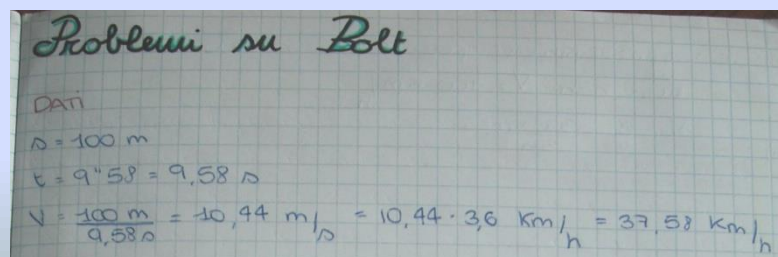 Problemi su Bolt
DATI
s = 100 m
t = 9"58 = 9,58 s
V = 100 m / 9,58 s = 10,44 m/s = 10,44 · 3,6 Km/h = 37,58 Km/h